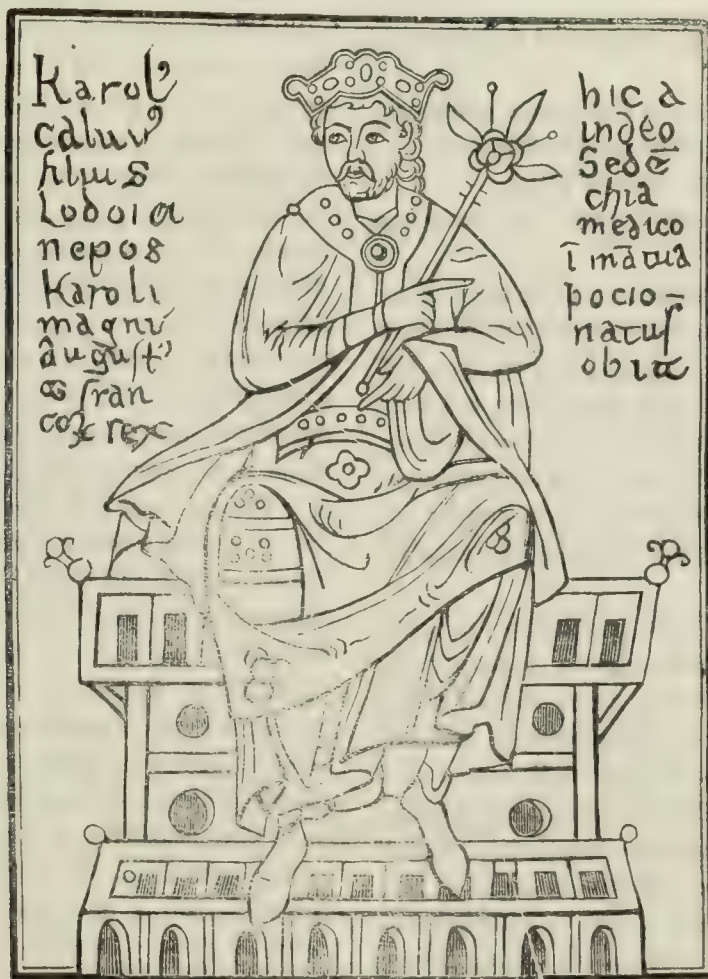 Karolꝰ
caluuꝰ
filius
Lodoici
nepos
Karoli
magni
august'
os fran
coꝝ rex
hic a
iudeo
Sedē
chia
medico
ī mātua
pocio-
natus
obiit